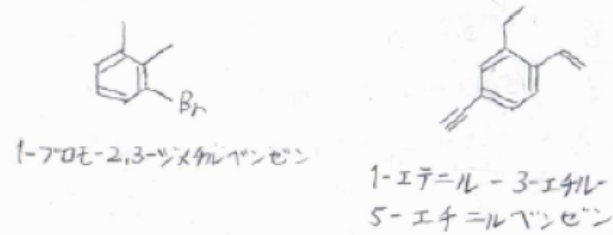 Br
1-ブロモ-2,3-ジメチルベンゼン
1-エテニル-3-エチル-
5-エチニルベンゼン